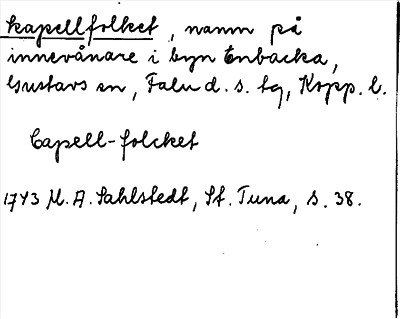 kapellfolket, namn på
innevånare i byn Enbacka,
Gustavs sn, Falu d. s. tg, Kopp. l.
Capell-folcket
1743 M. A. Sahlstedt, St. Tuna, s. 38.